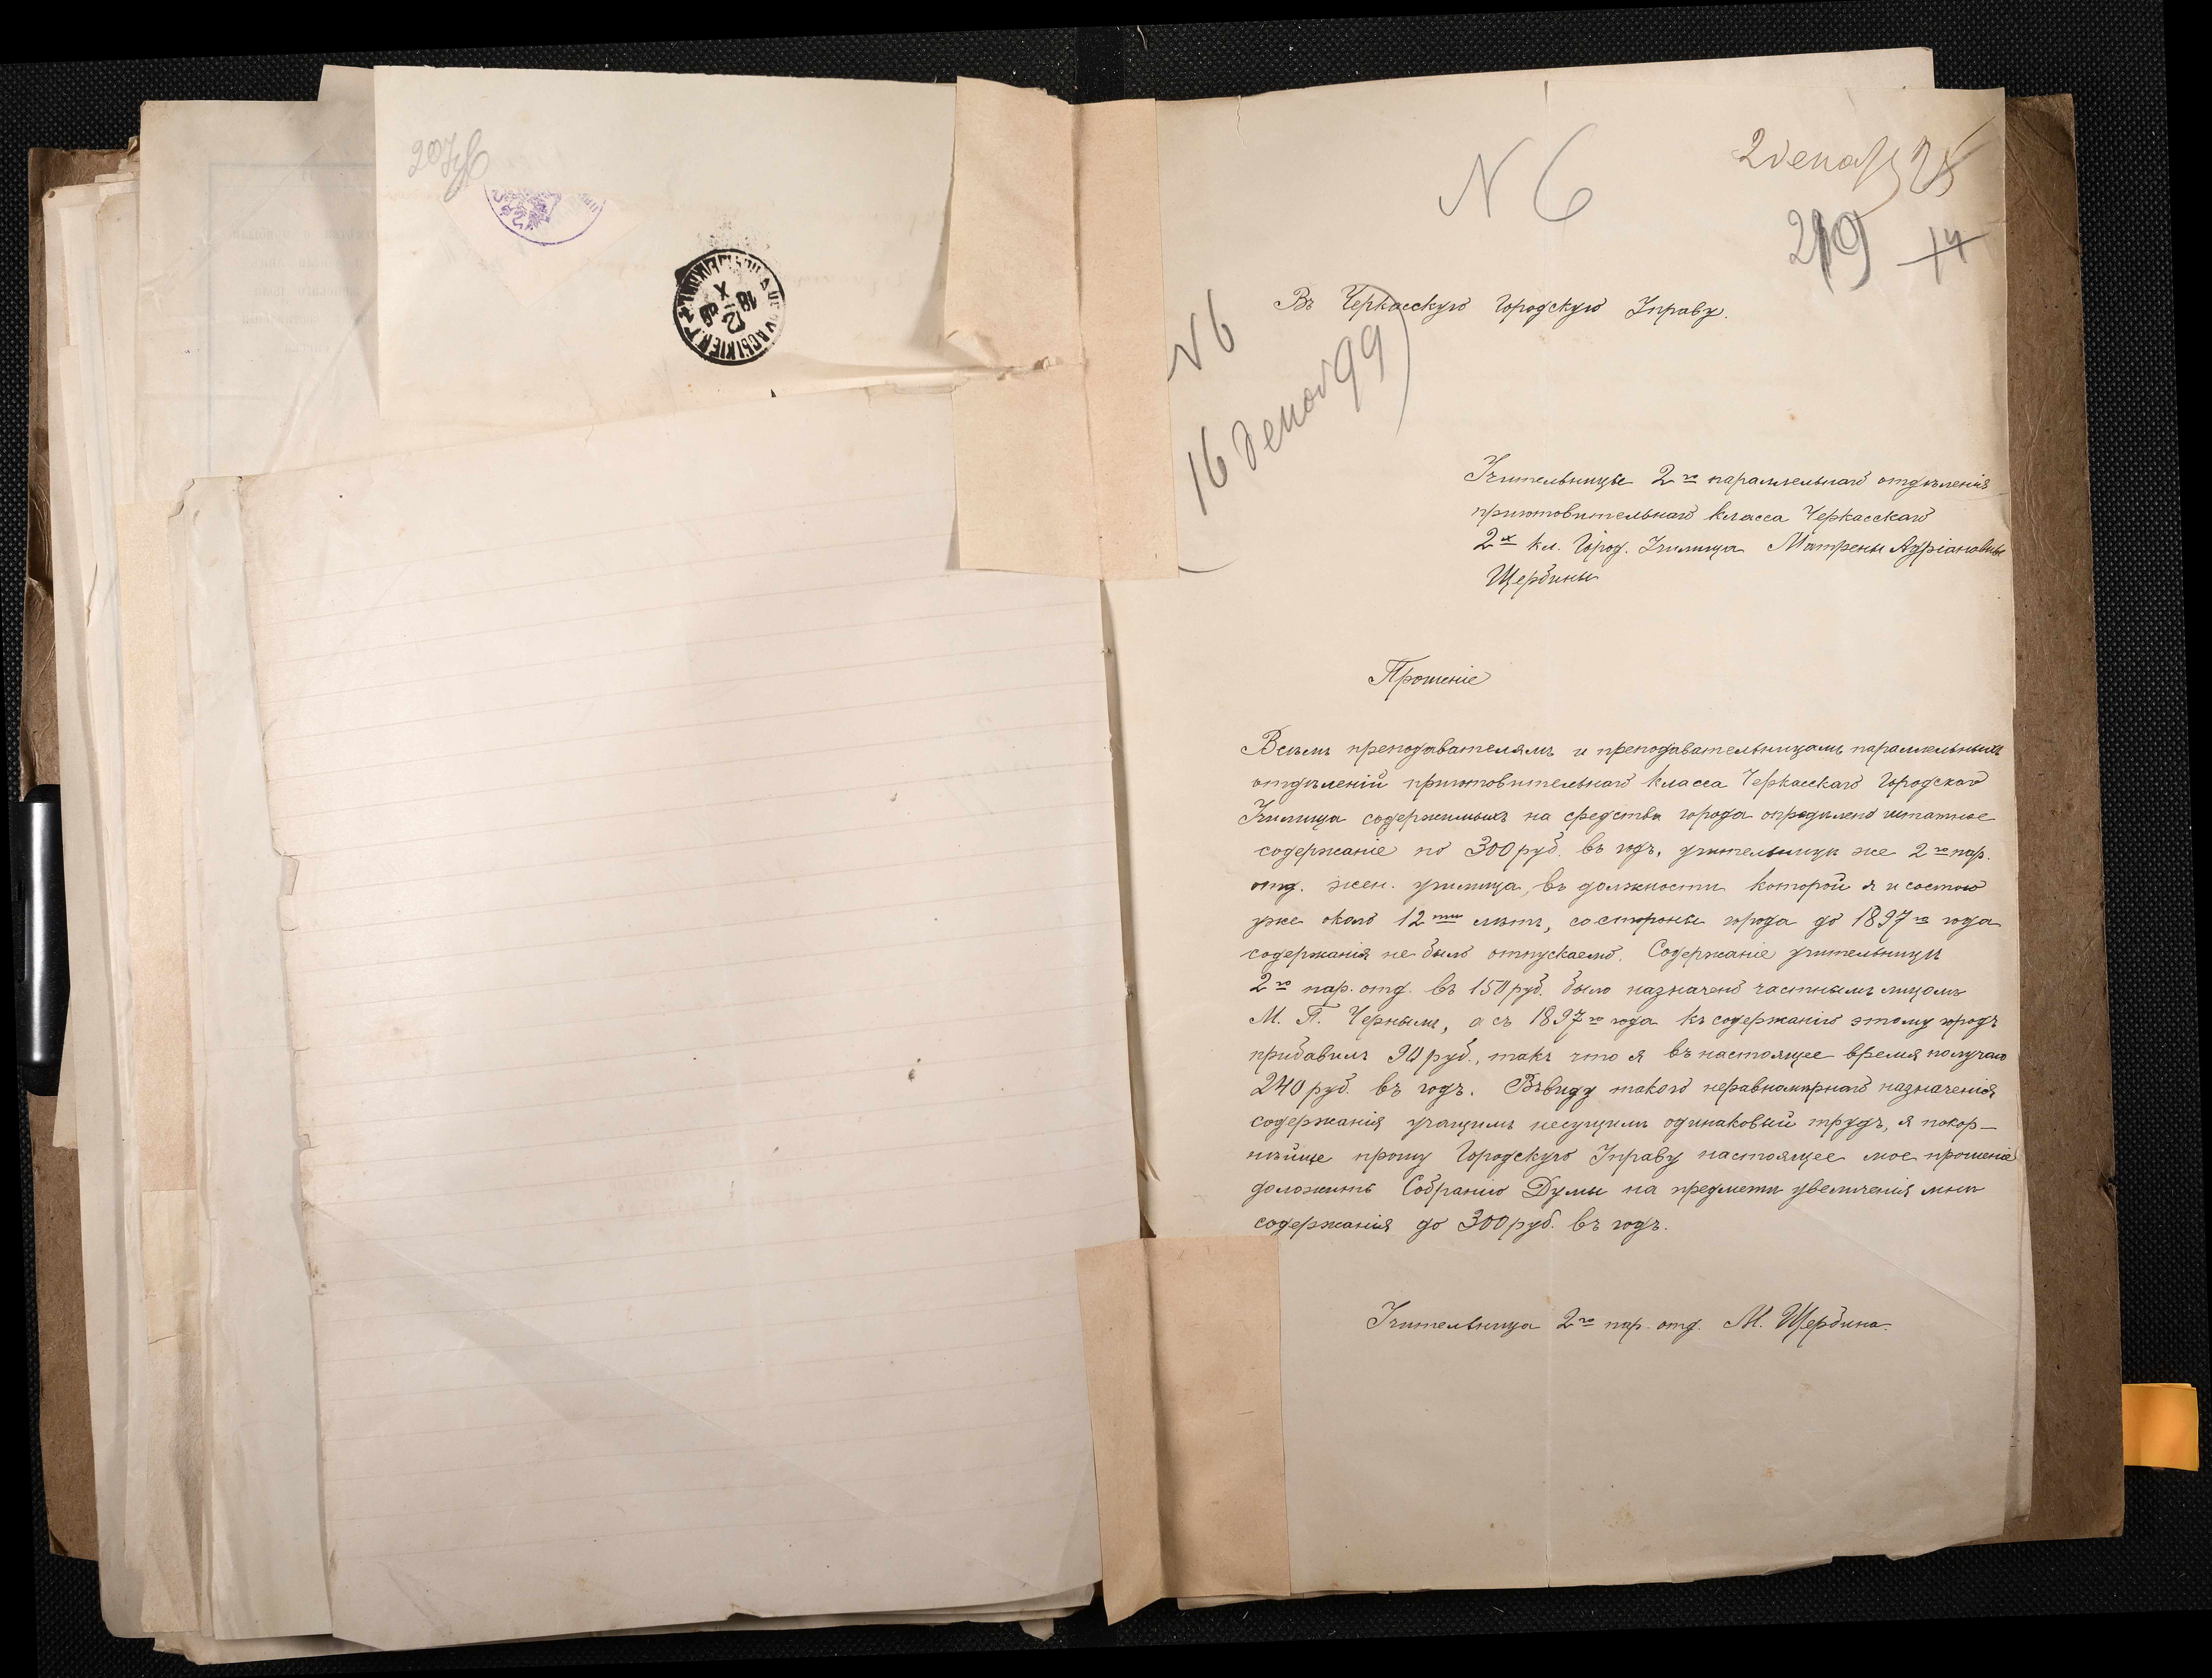 207
18 X 99
N 6
2 декаб
219
14
N 6
16 декаб 99
Въ Черкасскую Городскую Управу.
Учительницы 2го параллельнаго отдѣленія
приготовительнаго класса Черкасскаго
2х кл. Город. Училища Матрены Адріановны
Щербины
Прошеніе
Всѣмъ преподавателямъ и преподавательницамъ параллельныхъ
отдѣленій приготовительнаго класса Черкасскаго Городского
Училища содержимыхъ на средства города опредѣлено штатное
содержаніе по 300 руб. въ годъ, учительницѣ же 2го пар.
отд. жен. училища, въ должности которой я и состою
уже около 12ти лѣтъ, со стороны города до 1897го года
содержанія не было отпускаемо. Содержаніе учительницѣ
2го пар. отд. въ 150 руб. было назначено частнымъ лицомъ
М. П. Чернымъ, а съ 1897го года къ содержанію этому городъ
прибавилъ 90 руб., такъ что я въ настоящее время получаю
240 руб. въ годъ. Въ виду такого неравномѣрнаго назначенія
содержанія учащимъ несущимъ одинаковый трудъ, я покор-
нѣйше прошу Городскую Управу настоящее мое прошеніе
доложить Собранію Думы на предметъ увеличенія мнѣ
содержанія до 300 руб. въ годъ.
Учительница 2го пар. отд. М. Щербина.